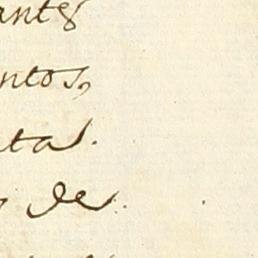 antes
ntos,
ta.
de